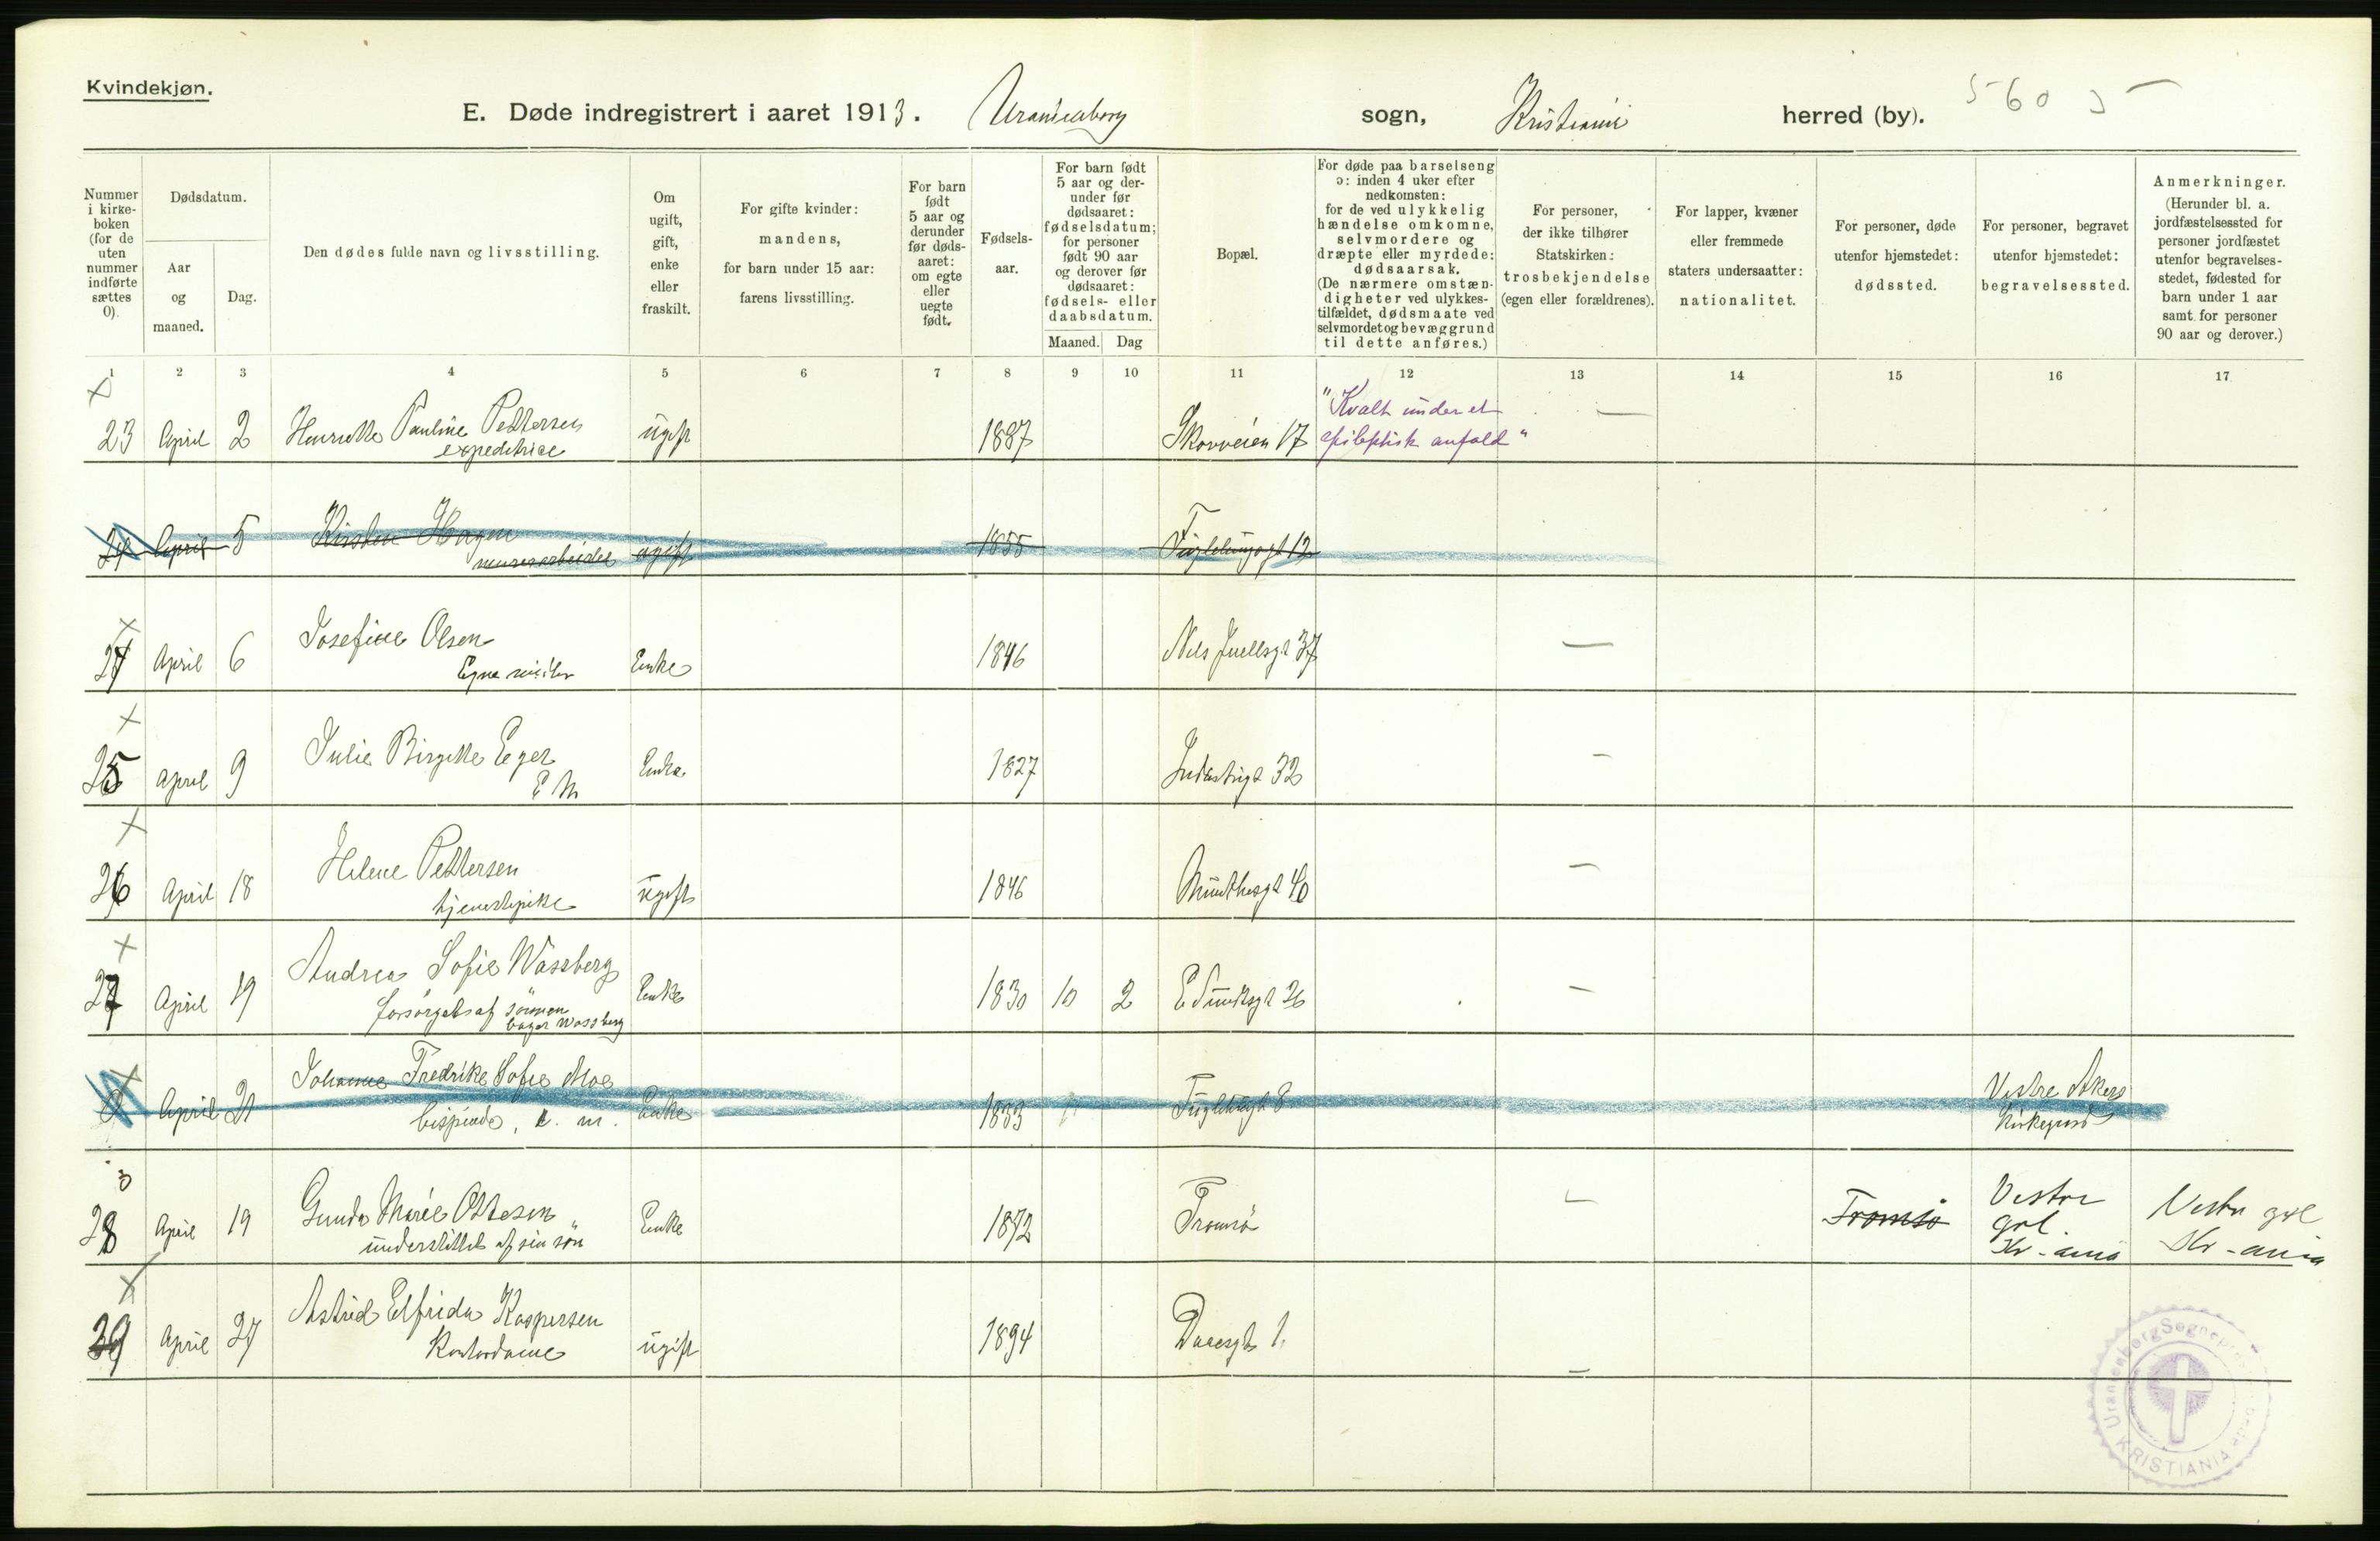 Kvindekjøn.
E. Døde indregistrert i aaret 1913. Uranienborg sogn, Kristiania herred (by). 560
Nummer i kirke-boken (for de uten nummer indførte sættes 0).
Dødsdatum.
Aar og maaned.
Dag.
Den dødes fulde navn og livsstilling.
Om ugift, gift, enke eller fraskilt.
For gifte kvinder: mandens, for barn under 15 aar: farens livsstilling.
For barn født 5 aar og derunder før døds-aaret: om egte eller uegte født.
Fødsels-aar.
For barn født 5 aar og der-under før dødsaaret: fødselsdatum; for personer født 90 aar og derover før dødsaaret: fødsels- eller daabsdatum.
Maaned. Dag
Bopæl.
For døde paa barselseng ɔ: inden 4 uker efter nedkomsten: for de ved ulykkelig hændelse omkomne, selvmordere og dræpte eller myrdede: dødsaarsak. (De nærmere omstæn-digheter ved ulykkes-tilfældet, dødsmaate ved selvmordet og bevæggrund til dette anføres.)
For personer, der ikke tilhører Statskirken: trosbekjendelse (egen eller forældrenes).
For lapper, kvæner eller fremmede staters undersaatter: nationalitet.
For personer, døde utenfor hjemstedet: dødssted.
For personer, begravet utenfor hjemstedet: begravelsessted.
Anmerkninger. (Herunder bl. a. jordfæstelsessted for personer jordfæstet utenfor begravelses-stedet, fødested for barn under 1 aar samt for personer 90 aar og derover.)
1 2 3 4 5 6 7 8 9 10 11 12 13 14 15 16 17
23 April 2 Henriette Pauline Pettersen ugift 1887 Skovveien 17 "Kvalt under et
expeditrice epileptisk anfald" —
24 April 5 Kirsten Hagen ugift 1855 Fuglehauggt 12
24 April 6 Josefine Olsen Enke 1846 Nils Juellsgt 37 —
Egne midler
25 April 9 Julie Birgitte Eger Enke 1827 Industrigt 32 —
E M
26 April 18 Helene Pettersen ugift 1846 Munthesgt 40 —
tjenestepike
27 April 19 Andrea Sofie Wassberg Enke 1830 10 2 E Sundtsgt 26 —
forsørget af sønnen
Wassberg
April 21 Johanne Fredrike Sofie Moe Enke 1833 Fuglehaugt 8 Vestre Akers
e. m. Kirkegaard
28 April 19 Gunda Marie Ottesen Enke 1872 Tromsø — Tromsø Vestre grl. Kr-ania Vestre grl Kr-ania
understøttet af sin søn
29 April 27 Astrid Elfrida Kaspersen ugift 1894 Daaesgt 1. —
Kontordame
Uranienborg Sogneprest
KRISTIANIA